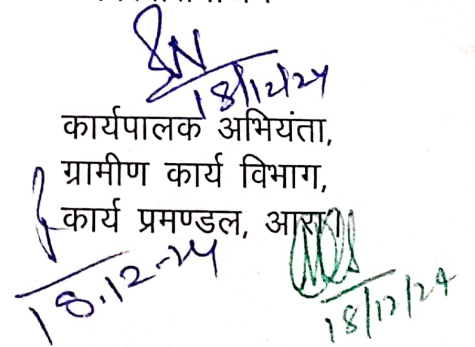 18/12/24
कार्यपालक अभियंता,
ग्रामीण कार्य विभाग,
कार्य प्रमण्डल, आरा।
18.12-24
18/12/24